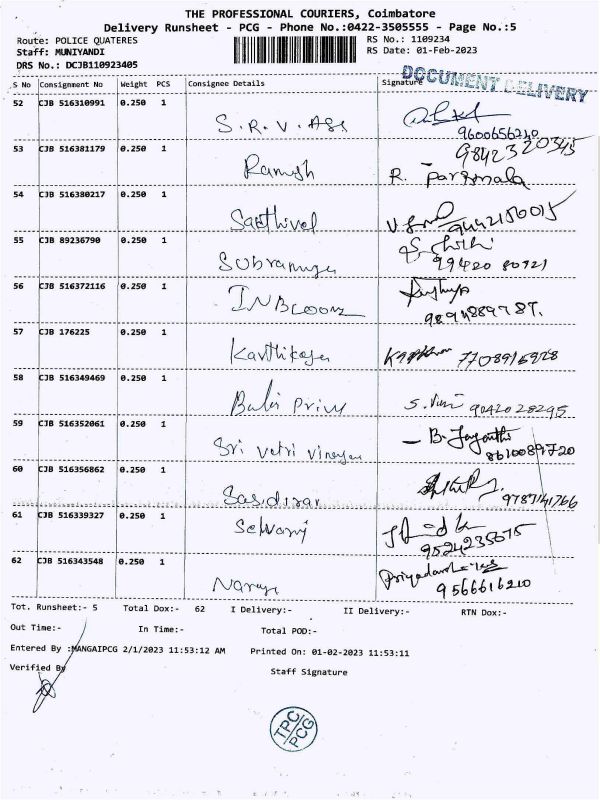 THE PROFESSIONAL COURIERS, Coimbatore
Delivery Runsheet - PCG - Phone No.:0422-3505555 - Page No.:5
Route: POLICE QUATERES RS No.: 1109234
Staff: MUNIYANDI RS Date: 01-Feb-2023
DRS No.: DCJB110923405
DOCUMENT DELIVERY
S No Consignment No Weight PCS Consignee Details Signature
52 CJB 516310991 0.250 1
S.R.V. 
9600656210
53 CJB 516381179 0.250 1 9842320345
Ramesh R. Parimala
54 CJB 516380217 0.250 1
Sakthivel 9442150015
55 CJB 89236790 0.250 1
99420 80921
56 CJB 516372116 0.250 1
57 CJB 176225 0.250 1
7708916928
58 CJB 516349469 0.250 1
S. 9042028295
59 CJB 516352061 0.250 1
Sri Vetri B. Jayanthi
8610089720
60 CJB 516356862 0.250 1
9787141766
61 CJB 516339327 0.250 1
9524235675
62 CJB 516343548 0.250 1
9566616210
Tot. Runsheet:- 5 Total Dox:- 62 I Delivery:- II Delivery:- RTN Dox:-
Out Time:- In Time:- Total POD:-
Entered By :MANGAIPCG 2/1/2023 11:53:12 AM Printed On: 01-02-2023 11:53:11
Verified By
Staff Signature
TPC/
PCG